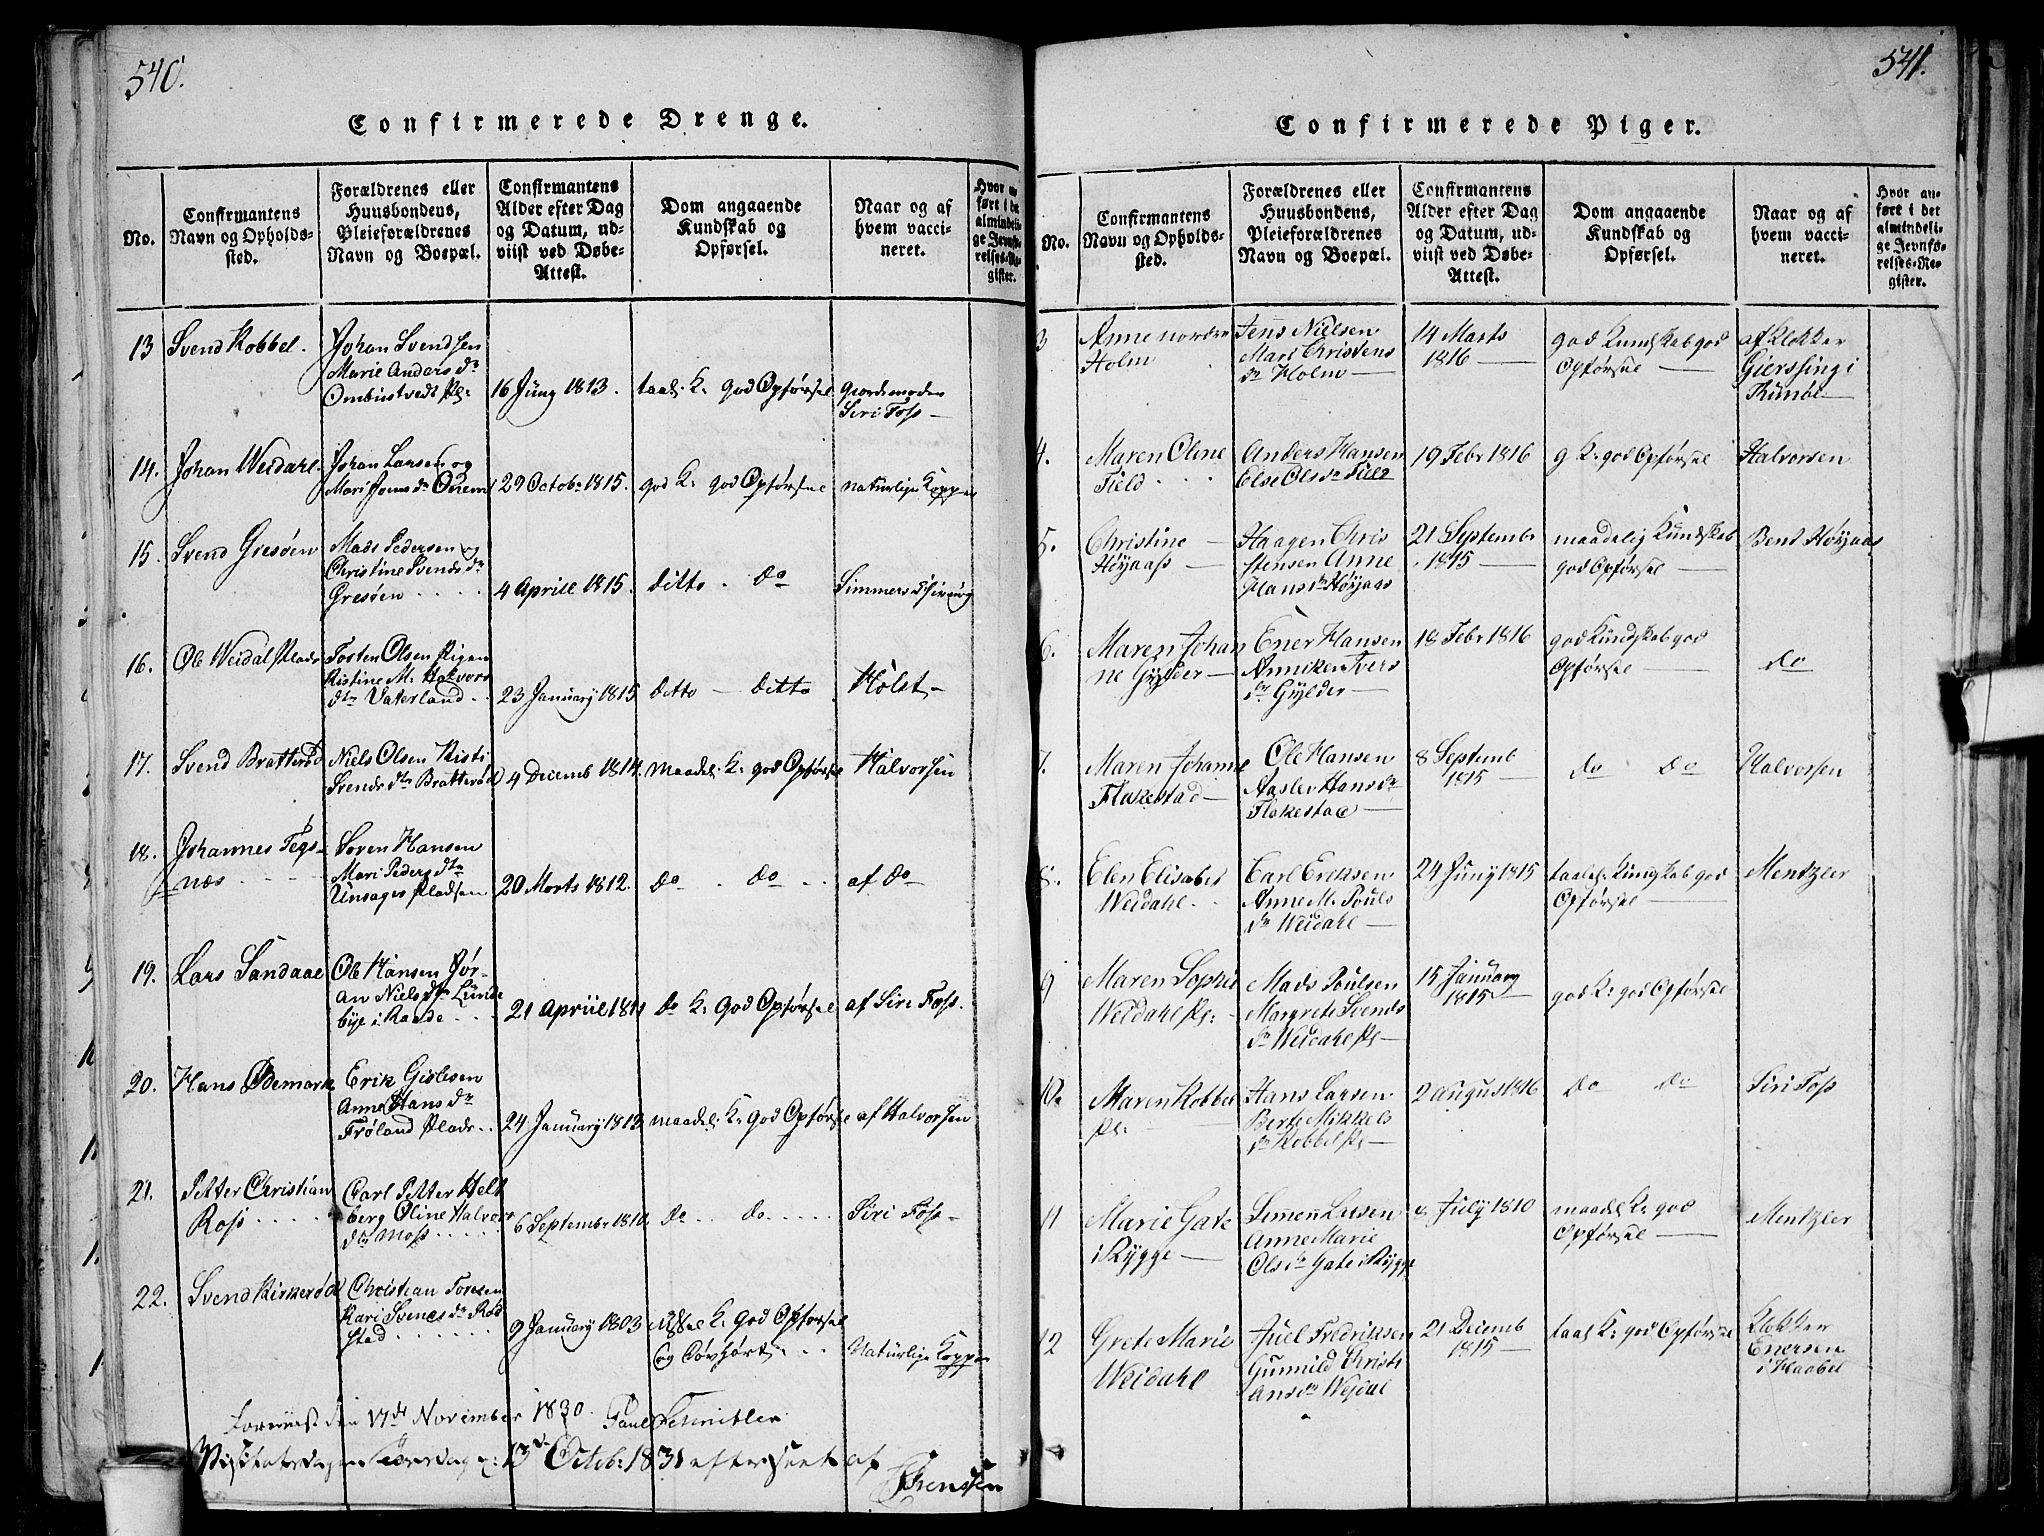 540.
Confirmerede Drenge.
No.
Confirmantens
Navn og Opholds-
sted.
Forældrenes eller
Huusbondens,
Pleieforældrenes
Navn og Boepæl.
Confirmantens
Alder efter Dag
og Datum, ud-
viist ved Døbe-
Attest.
Dom angaaende
Kundskab og
Opførsel.
Naar og af
hvem vacci-
neret.
Hvor an-
ført i det
almindeli-
ge Jevnfø-
relses-Re-
gister.
13 Svend Kobbel. Johan Svendsen
Marie Anders dr
Ombustvedt Pl: 16 Juny 1813. taal: K: god Opførsel Giordemoder
Siri Foss
14. Johan Weidahl. Johan Larsen og
Mari Jens dr 29 Octobr 1815. god K: god Opførsel naturlige Kopper
15. Svend Giesøen Mads Pedersen og
Christine Svends dr
Gresøen 4 Aprill 1815. ditto. do Simmers
16. Ole Weidal Plads Tosten Olsen
Kistine M: Halvors
dtr Vaterland 23 January 1815 ditto - ditto Holst
17. Svend Bratterød Niels Olsen Kisti
Svends dtr Bratterød 4 Decemb 1814. maadel: K: god Opførsel Halvorsen
18. Johannes Tegs-
næs Søren Hansen
Mari Peders dtr
Unsages Pladsen 20 Marts 1812. do do af do
19. Lars Sandaae Ole Hansen Jør-
an Niels dtr Lunde
bye i Raade 21 Apriil 1811 do K: god Opførsel af Siri Foss.
20. Hans Ødemark Erik Gislesen
Anne Hans dr
Frøland Plads 24 January 1813. maadel: K: god Opførsel af Halvorsen
21. Petter Christian
Ross Carl Petter Helt
berg Oline Halvors
dtr Moss 6 Septembr 1810. do do Siri Foss
22. Svend Kirkerød Christian Toresen
Kari Svends dr Rød
stad 9 January 1803 K: god Opførsel
og Naturlige Kopper
den 17de November 1830. Paul
13de Octbr: 1831 efterseet af
Sørenssen
541.
Confirmerede Piger.
No.
Confirmantens
Navn og Opholds-
sted.
Forældrenes eller
Huusbondens,
Pleieforældrenes
Navn og Boepæl.
Confirmantens
Alder efter Dag
og Datum, ud-
viist ved Døbe-
Attest.
Dom angaaende
Kundskab og
Opførsel.
Naar og af
hvem vacci-
neret.
Hvor an-
ført i det
almindeli-
ge Jevnfø-
relses-Re-
gister.
3 Anne nordre
Holm Jens Nielsen
Mari Christens
dr Holm 14 Marts
1816 god Kundskab god
Opførsel af Klokker
Gierssing i
4. Maren Oline
Field Anders Hansen
Else Ols dr Field 19 Febr 1816 g K: god Opførsel Halvorsen
5. Christine
Høyaas Haagen Chris
stensen Anne
Hans dr Høyaas 21 Septembr
1815 maadelig Kundskab
god Opførsel Bent Høyaas
6. Maren Johan
ne Gylder Ener Hansen
Anniken Ivers
dr Gylder 18 Febr 1816 god Kundskab god
Opførsel do
7. Maren Johanne
Flakestad Ole Hansen
Aaslev Hans dr
Flakestad 8 Septemb
1815 do do Halvorsen
8. Elen Elisabet
Weidahl Carl Eriksen
Anne M. Pouls
dr Weidahl 24 Juny 1815 taalel: Kundskab god
Opførsel Mentzler
9 Maren Sophie
Weidahl Pl: Mads Poulsen
Margrete Svends
dr Weidahl Pl 15 January
1815 god K: god Opførsel
10. Maren Kobbel
Pl: Hans Larsen
Berte Mikkels
dr Kobbel Pl 2 August 1816 do do Siri Foss
11 Marie Gate
i Rygge Simen
Anne Marie
Ols dr Gate i Rygge July 1810 maadel K: god
Opførsel Mentzler
12 Grete Marie
Weidahl Juel Fredriksen
Gunnild Christi
Ans dr Wejdal 21 Decemb
1815 taal K: god Opførsel Klokker
Enersen
i Haabel